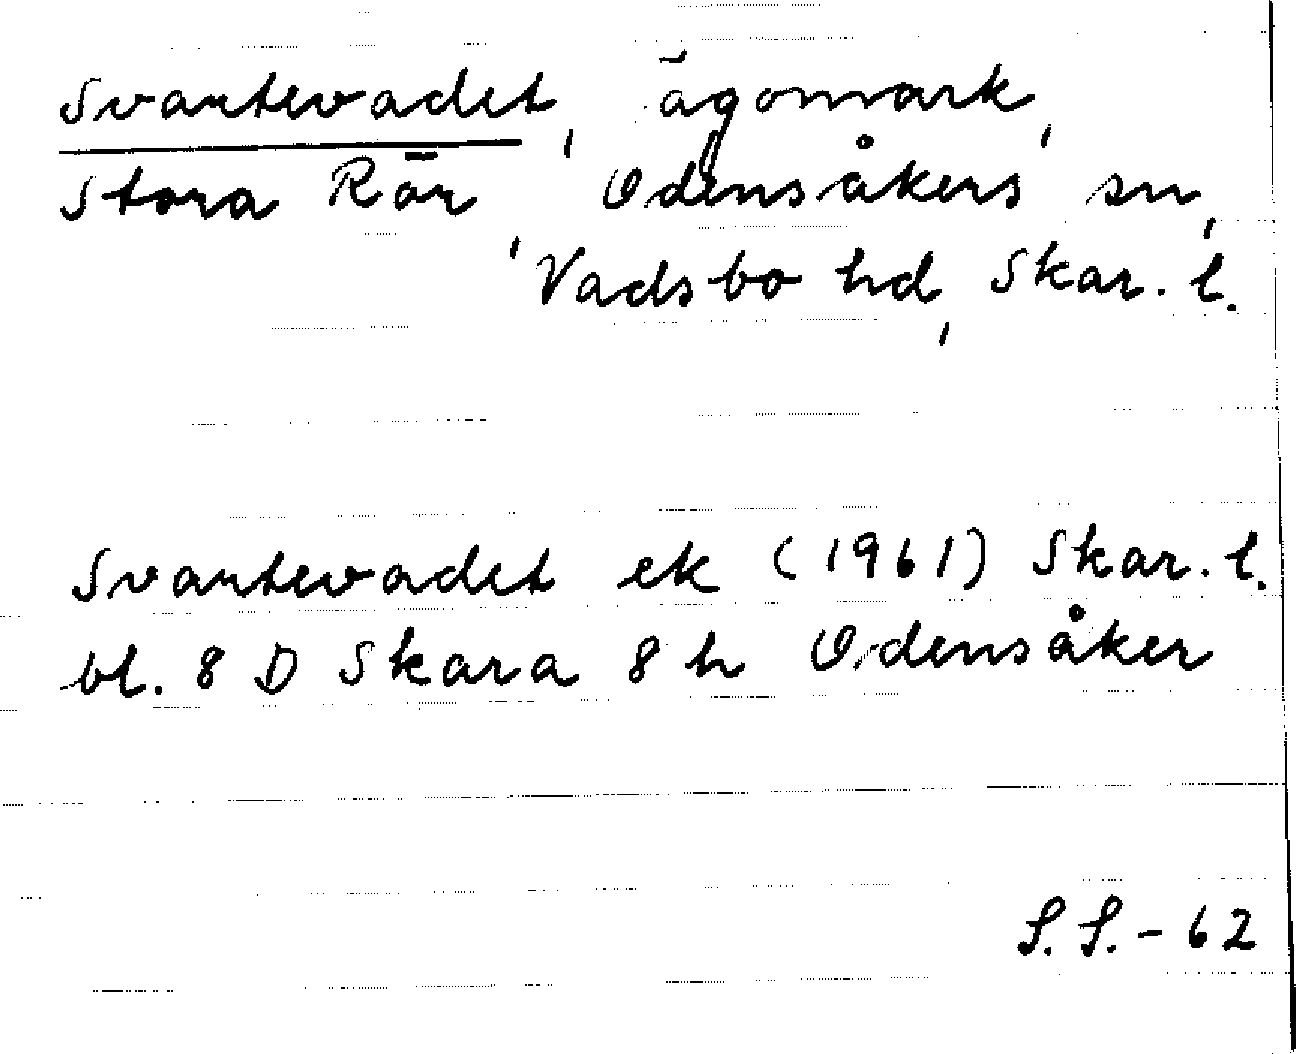 Svantevadet, ägomark,
Stora Rör, Odensåkers sn,
Vadsbo hd, Skar. l.
Svantevadet ek (1961) Skar. l.
bl. 8 D Skara 8 h Odensåker
S. S. - 62